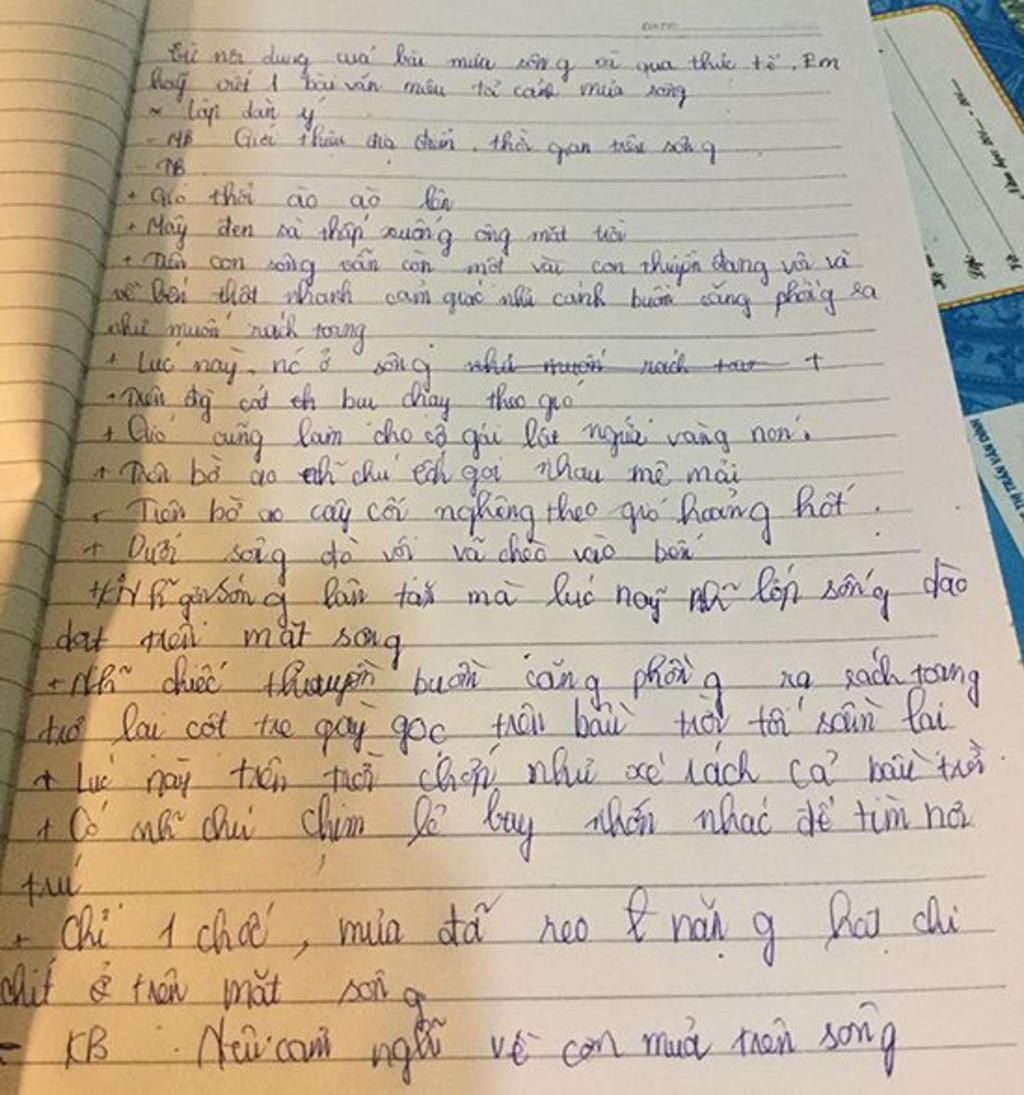 DATE:
Từ nội dung của bài mưa sông và qua thực tế. Em
hãy viết 1 bài văn miêu tả cảnh mưa sông
~ Lập dàn ý
- MB Giới thiệu địa điểm, thời gian trên sông
- TB
+ Gió thổi ào ào lên
+ Mây đen sà thấp xuống ông mặt trời
+ Trên con sông vẫn còn một vài con thuyền đang vội vã
về bến thật nhanh cảm giác như cánh buồm căng phồng ra
như muốn rách toang
+ Lúc này, nc ở sông như muốn rách toa +
- Trên đg cát bụi chạy theo gió
+ Gió cũng làm cho cô gái lật ngửa vàng non.
+ Trên bờ ao chú ếch gọi nhau mê mải
- Trên bờ ao cây cối nghiêng theo gió hoảng hốt.
+ Dưới sông đò vội vã chèo vào bến
lăn tăn mà lúc này nhữ lớp sóng dào
dạt trên mặt sông
+ Nhữ chiếc thuyền buồm căng phồng ra rách toang
trơ lại cột tre gầy gộc trên bầu trời tối sầm lại
+ Lúc này trên trời chớp như xé rách cả bầu trời
+ Có nhữ chú chim lẻ bay nhớn nhác để tìm nơi
trú
+ Chỉ 1 chốc, mưa đã reo nặng hạt chi
chít ở trên mặt sông
- KB : Nêu cảm nghĩ về cơn mưa trên sông
Lớp:
THỊ TRẤN VÂN ĐÌNH